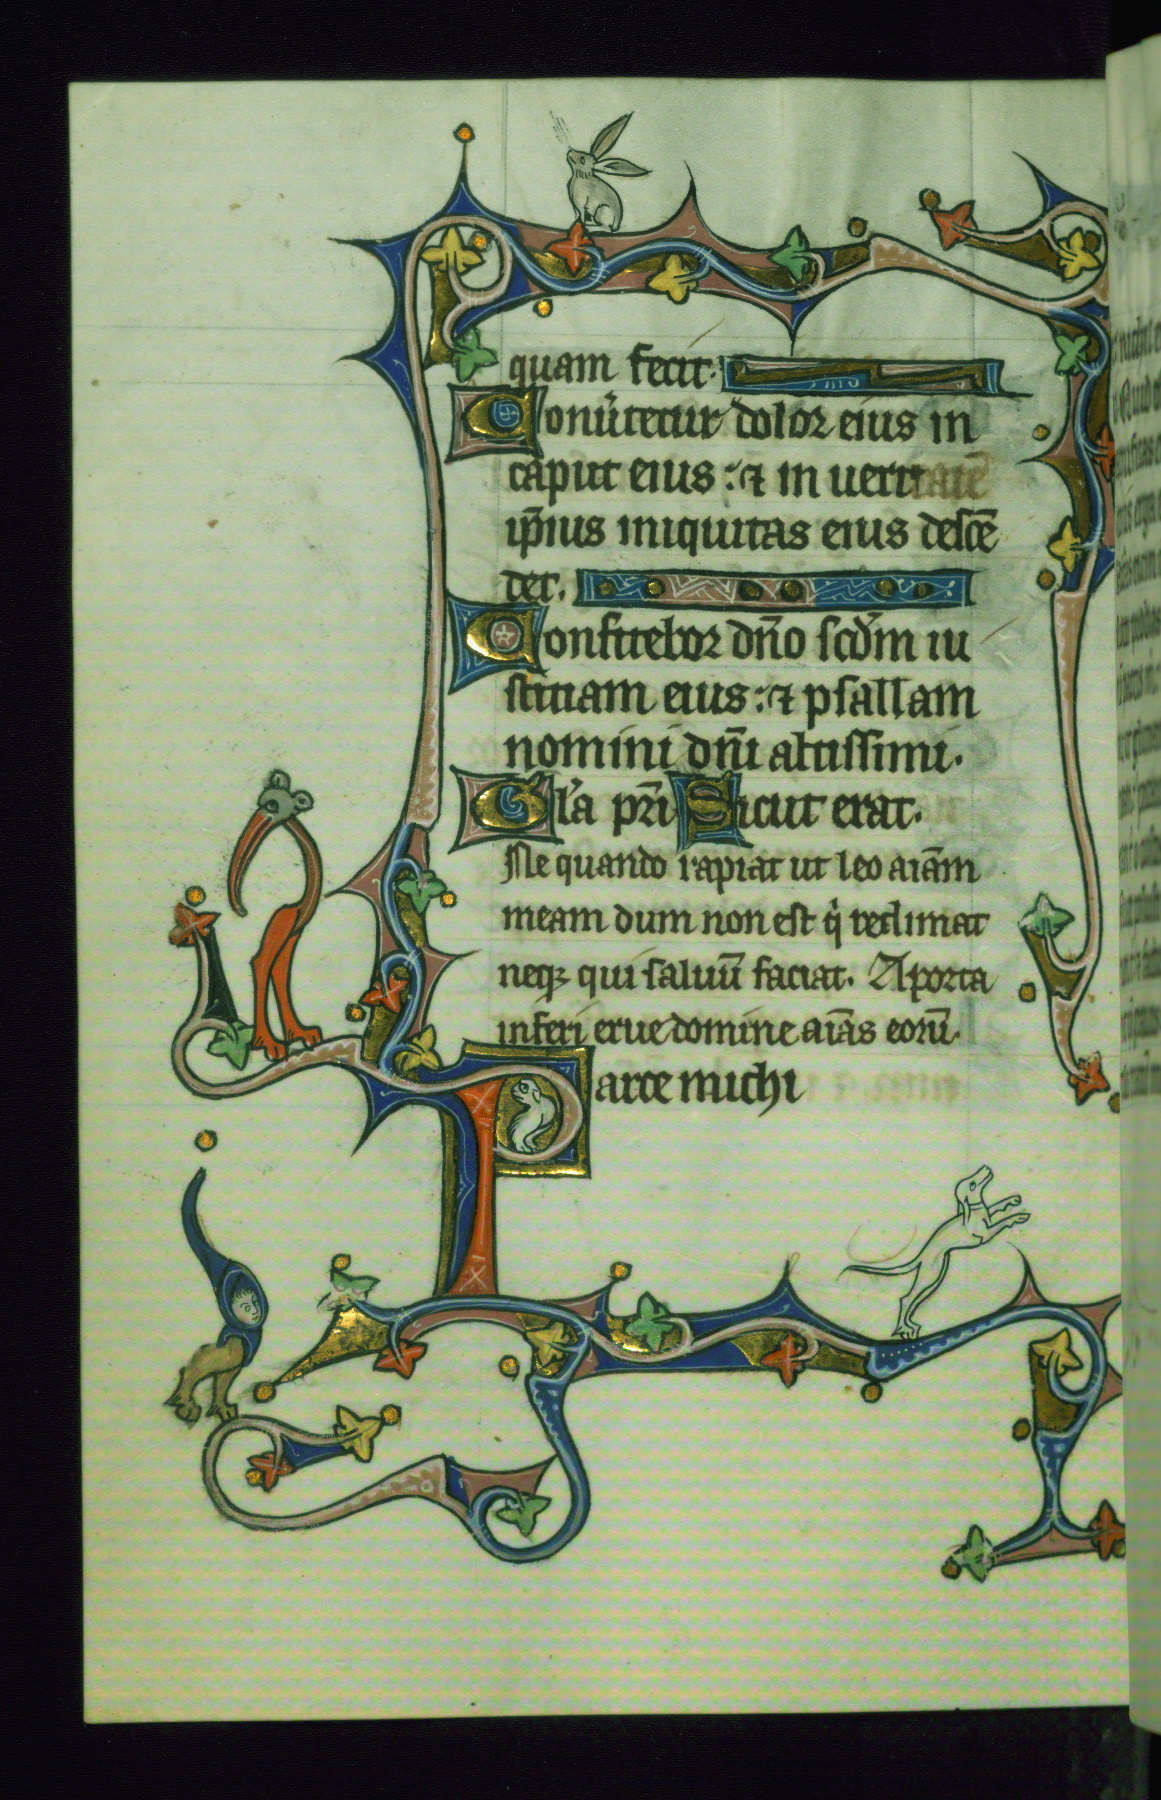 quam fecit.
Conũtetur dolor eius in
caput eius: ⁊ in ueritatē
ip̄ius iniquitas eius descē
det.
Confitebor dn̄o scd̄m iu
stitiam eius: ⁊ psallam
nomini dn̄i altissimi.
Gl'a pr̄i Sicut erat.
Ne quando rapiat ut leo aīam
meam dum non est q̇ redimat
neqꝫ qui saluū faciat. A porta
inferi erue domine aīas eorū.
Parce michi